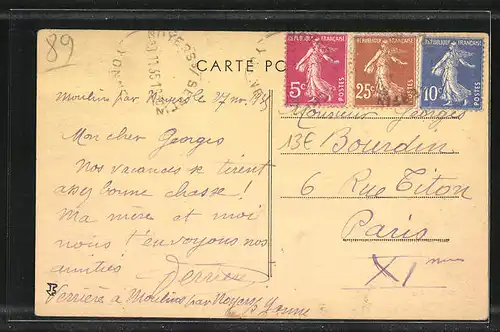 89
CARTE PO
REPUBLIQUE FRANÇAISE
5c POSTES
REPUBLIQUE FRANÇAISE
25c POSTES
REPUBLIQUE FRANÇAISE
10c POSTES
Moulins par Noyers le 27 nov 1935
Mon cher Georges
Nos vacances se tirent
assez bonne chasse!
Ma mère et moi
nous t'envoyons nos
amitiés
Verrière à Moulins par Noyers s/ Yonne
Monsieur Georges
Bourdin
6 Rue Titon
Paris
XI